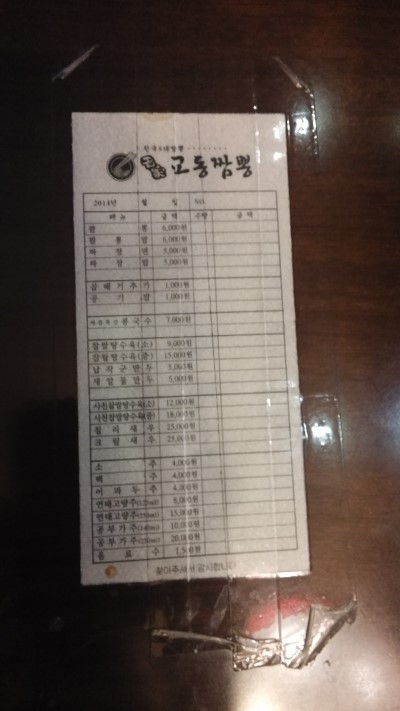 교동짬뽕
2014년 월 일 NO.
메뉴 금액 수량 금액
짬 뽕 6,000원
짬 뽕 밥 6,000원
짜 장 면 5,000원
짜 장 밥 5,000원
곱 배 기 추 가 1,000원
공 기 밥 1,000원
콩 국 수 7,000원
찹쌀탕수육(소) 9,000원
찹쌀탕수육(중) 15,000원
납 작 군 만 두 5,000원
새 알 물 만 두 5,000원
사천찹쌀탕수육(소) 12,000원
사천찹쌀탕수육(중) 18,000원
칠 리 새 우 25,000원
크 림 새 우 25,000원
소 주 4,000원
맥 주 4,000원
이 과 두 주 4,000원
연태고량주(125ml) 8,000원
연태고량주(250ml) 15,000원
공 부 가 주 10,000원
공 부 가 주 20,000원
음 료 수 1,500원
찾아주셔서 감사합니다